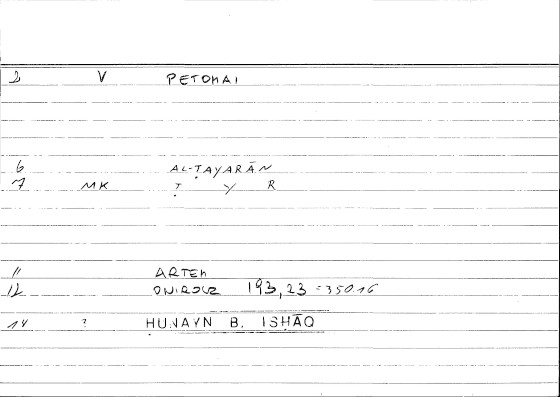 2 V PETOMAI
6 AL-ṬAYARĀN
7 MK Ṭ Y R
11 ARTEM
12 ONIROCR 193,23 = 35016
14 ? HUNAYN B. ISHĀQ